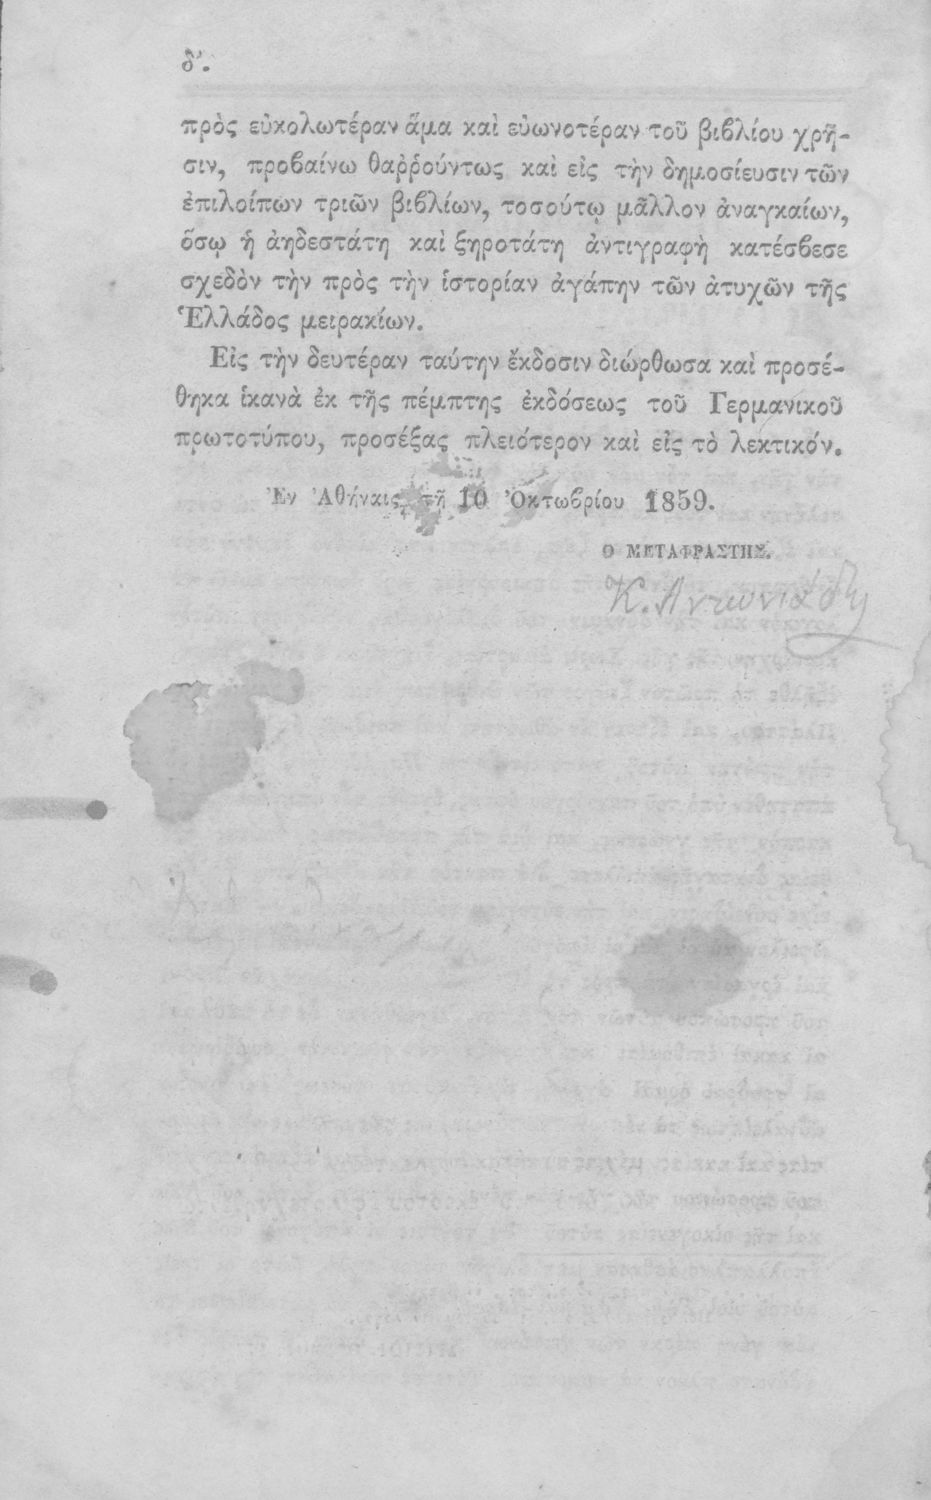 δ'.
πρὸς εὐκολωτέραν ἅμα καὶ εὐωνοτέραν τοῦ βιβλίου χρῆ-
σιν, προβαίνω θαῤῥούντως καὶ εἰς τὴν δημοσίευσιν τῶν
ἐπιλοίπων τριῶν βιβλίων, τοσούτῳ μᾶλλον ἀναγκαίων,
ὅσῳ ἡ ἀηδεστάτη καὶ ξηροτάτη ἀντιγραφὴ κατέσβεσε
σχεδὸν τὴν πρὸς τὴν ἱστορίαν ἀγάπην τῶν ἀτυχῶν τῆς
Ἑλλάδος μειρακίων.
Εἰς τὴν δευτέραν ταύτην ἔκδοσιν διώρθωσα καὶ προσέ-
θηκα ἱκανὰ ἐκ τῆς πέμπτης ἐκδόσεως τοῦ Γερμανικοῦ
πρωτοτύπου, προσέξας πλειότερον καὶ εἰς τὸ λεκτικόν.
Ἐν Ἀθήναις τῇ 10 Ὀκτωβρίου 1859.
Ο ΜΕΤΑΦΡΑΣΤΗΣ.
Κ. Ἀντωνιάδη